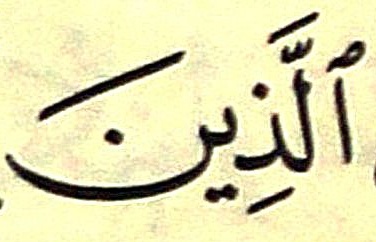 ٱلَّذِينَ